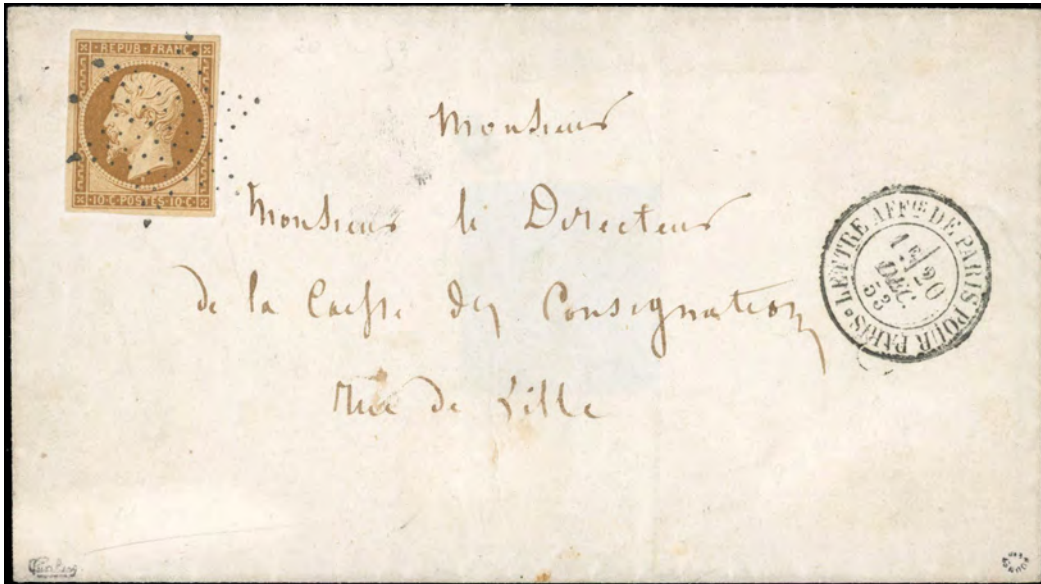 REPUB. FRANC.
10·C·POSTES·10·C
Monsieur
Monsieur le Directeur
de la Caisse des Consignations
rue de Lille
LETTRE AFF^IE DE PARIS POUR PARIS
1^E/20
DÉC.
53